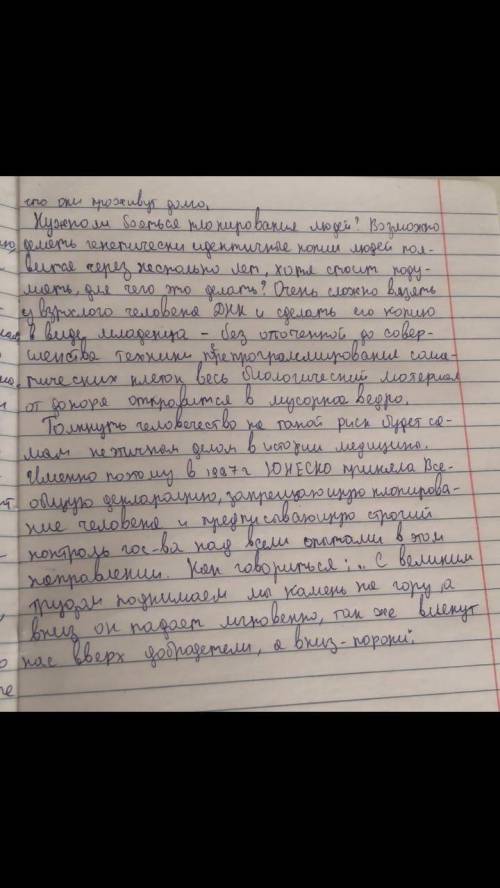 что они проживут долго.
Нужно ли бояться клонирования людей? Возможно
делать генетически идентичные копии людей поя-
вится через несколько лет, хотя стоит поду-
мать, для чего это делать? Очень сложно взять
у взрослого человека ДНК и сделать его копию
в виде младенца - без отточенной до совер-
шенства техники перепрограммирования сома-
тических клеток весь биологический материал
от донора отправится в мусорное ведро.
Толкнуть человечество на такой риск будет са-
мым нэтичным делом в истории медицины.
Именно поэтому в 1997 г ЮНЕСКО приняла Все-
общую декларацию, запрещающую клонирова-
ние человека и предписывающую строгий
контроль гос-ва над всеми опытами в этом
направлении. Как говориться: .. С великим
трудом поднимаем мы камень на гору, а
вниз он падает мгновенно, так же влекут
нас вверх добродетели, а вниз - пороки".